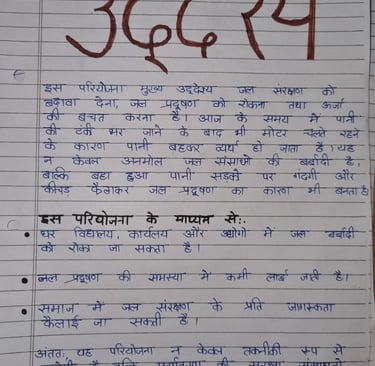 उद्देश्य
इस परियोजना मुख्य उद्देश्य जल संरक्षण को
बढ़ावा देना, जल प्रदूषण को रोकना तथा ऊर्जा
की बचत करना है। आज के समय में पानी
की टंकी भर जाने के बाद भी मोटर चलते रहने
के कारण पानी बहकर व्यर्थ हो जाता है। यह
न केवल अनमोल जल संसाधो की बर्बादी है,
बल्कि बहा हुआ पानी सड़कों पर गंदगी और
कीचड़ फैलाकर जल प्रदूषण का कारण भी बनता है।
इस परियोजना के माध्यम से:-
घर विद्यालय, कार्यलय और उद्योगो में जल बर्बादी
को रोका जा सकता है।
जल प्रदूषण की समस्या में कमी लाई जाती है।
समाज में जल संरक्षण के प्रति जागरूकता
फैलाई जा सकती है।
अंततः, यह परियोजना न केवल तकनीकी रूप से